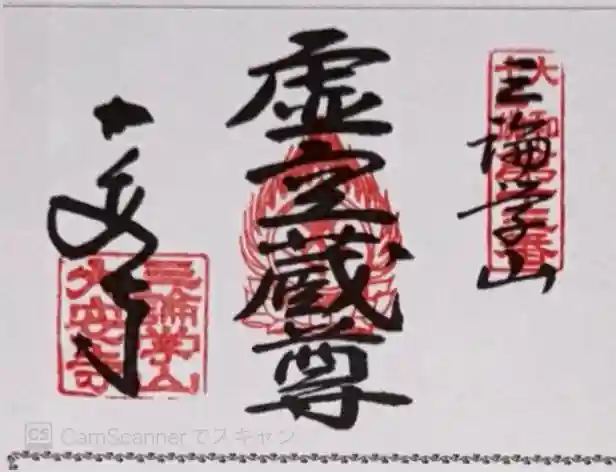 三論学山
虚空蔵尊
大安寺
三論学山
大安寺
CS CamScannerでスキャン